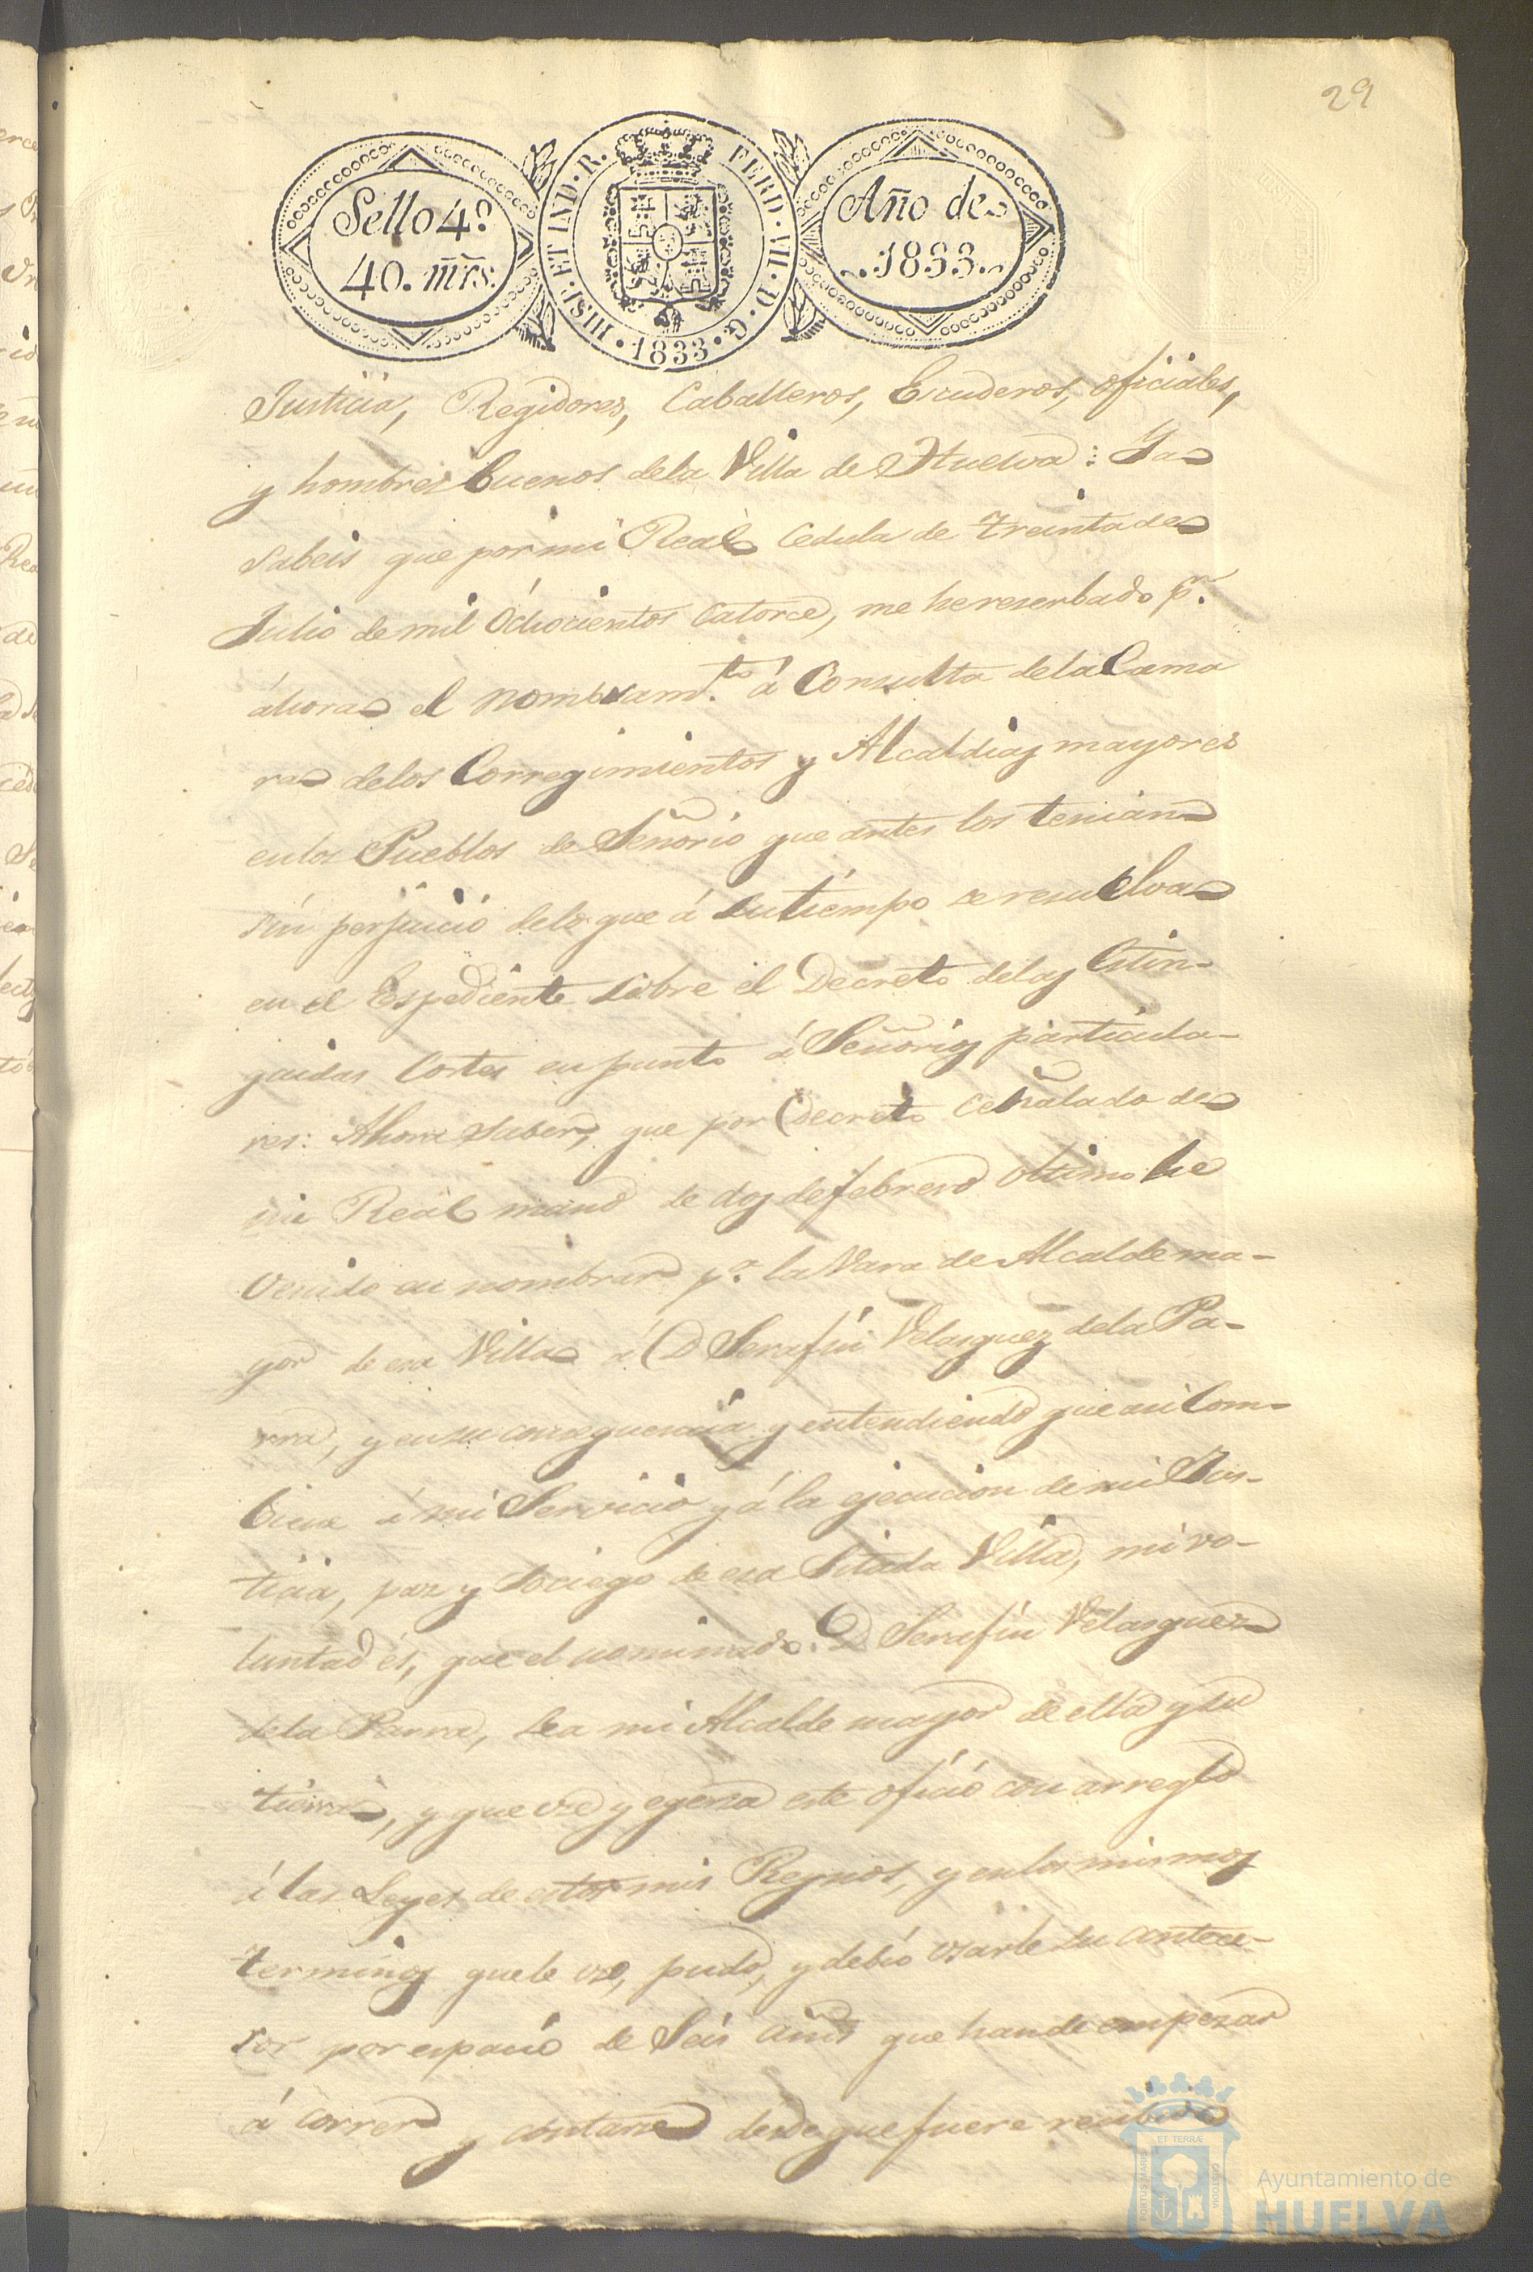 29
Sello 4º
40. mrs.
HISP. ET IND. R. FERD. VII. D. G. 1833
Año de
1833.
Justicia, Regidores, Caballeros, Escuderos, oficiales,
y hombres buenos dela Villa de Huelva: Ya
Sabeis que por mi Real Cedula de treinta de
Julio de mil Ochocientos Catorce, me he reserbado pr.
áhora el nombram.to á Consulta dela Cama
ra delos Corregimientos y Alcaldias mayores
enlos Pueblos de Señorio que antes los tenian
sin perjuicio delo que á su tiempo se resuelva
en el Espediente sobre el Decreto delas Estin-
guidas Cortes en punto á Señorios particula-
res: Ahora Sabed, que por Decreto Señalado de
mi Real mano de dos de febrero Ultimo he
venido en nombrar p.a la Vara de Alcalde ma-
yor de esa Villa á D Serafin Velasquez dela Pa-
rra, y en su consequencia y entendiendo que asi Com-
biene á mi Servicio y á la ejecucion de mi Jus-
ticia, paz y Sociego de esa Citada Villa, mi vo-
luntad és, que el nominado D Serafin Velasquez
dela Parra, sea mi Alcalde mayor de ella y su
tierra, y que use y egersa este oficio con arreglo
á las Leyes de estos mis Reynos, y enlos mismos
terminos que le uso, pudo, y debió usarle su antece-
sor por espacio de Seis años que han de empesar
á correr y contarse desde que fuere recibido
PORTUS MARIS ET TERRÆ CUSTODIA
Ayuntamiento de
HUELVA